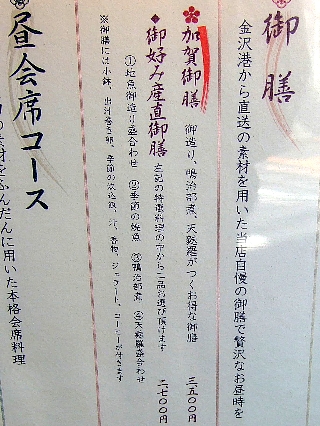 御膳
金沢港から直送の素材を用いた当店自慢の御膳で贅沢なお昼時を
加賀御膳 御造り、鴨治部煮、天麩羅がつくお得な御膳 三五〇〇円
◆御好み産直御膳 左記の特選料理の中から二品お選び頂けます 二七〇〇円
①地魚御造り盛合わせ ②季節の焼魚 ③鴨治部煮 ④天麩羅盛合わせ
※御膳には小鉢、出汁巻き卵、季節の炊込飯、汁、香物、ジェラート、コーヒーが付きます
昼会席コース
素材をふんだんに用いた本格会席料理